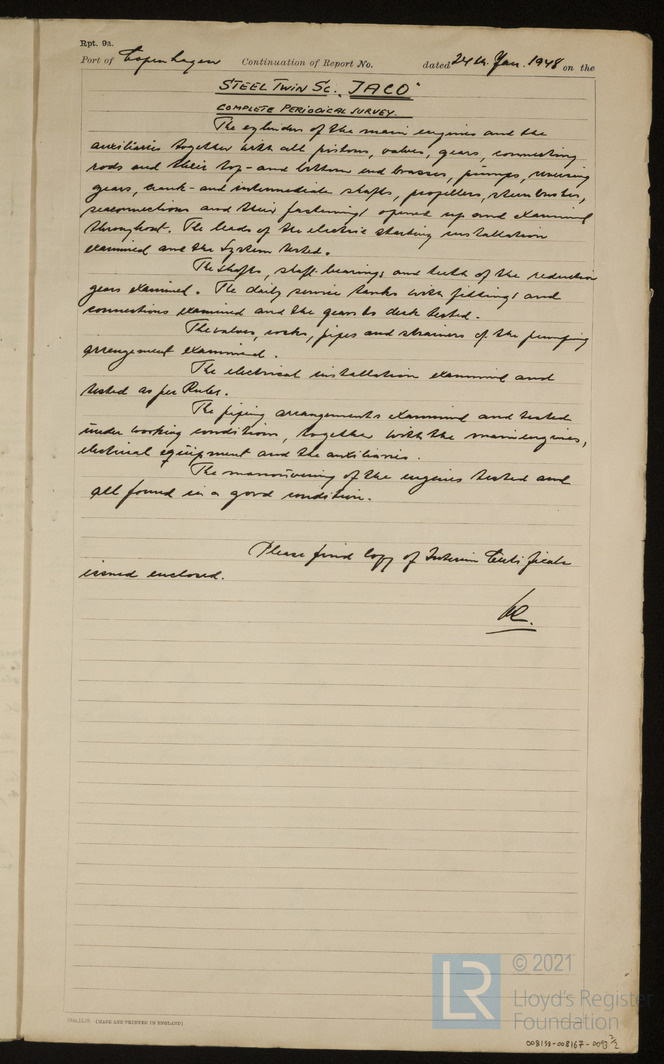 Rpt. 9a.
Port of Copenhagen Continuation of Report No. dated 24th Jan. 1948 on the
STEEL TWIN SC. "JACO"
COMPLETE PERIODICAL SURVEY.
The cylinders of the main engines and the
auxiliaries together with all pistons, valves, gears, connecting
rods and their top- and bottom end brasses, pumps, reversing
gears, crank- and intermediate shafts, propellers, stern bushes,
seaconnections and their fastenings opened up and examined
throughout. The leads of the electric starting installation
examined and the system tested.
The shafts, shaft bearings and teeth of the reduction
gears examined. The daily service tanks with fittings and
connections examined and the gears to deck tested.
The valves, cocks, pipes and strainers of the pumping
arrangement examined.
The electrical installation examined and
tested as per Rules.
The piping arrangements examined and tested
under working conditions, together with the main engines,
electrical equipment and the auxiliaries.
The manoeuvering of the engines tested and
all found in a good condition.
Please find Copy of Interim Certificate
issued enclosed.
(MADE AND PRINTED IN ENGLAND)
LR © 2021
Lloyd's Register
Foundation
008159-008167-0093 2/2